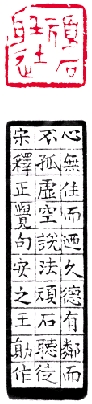 頑石
心無住而久德有鄰而
不孤虛空說法頑石聽從
宋釋正覺句安之王作